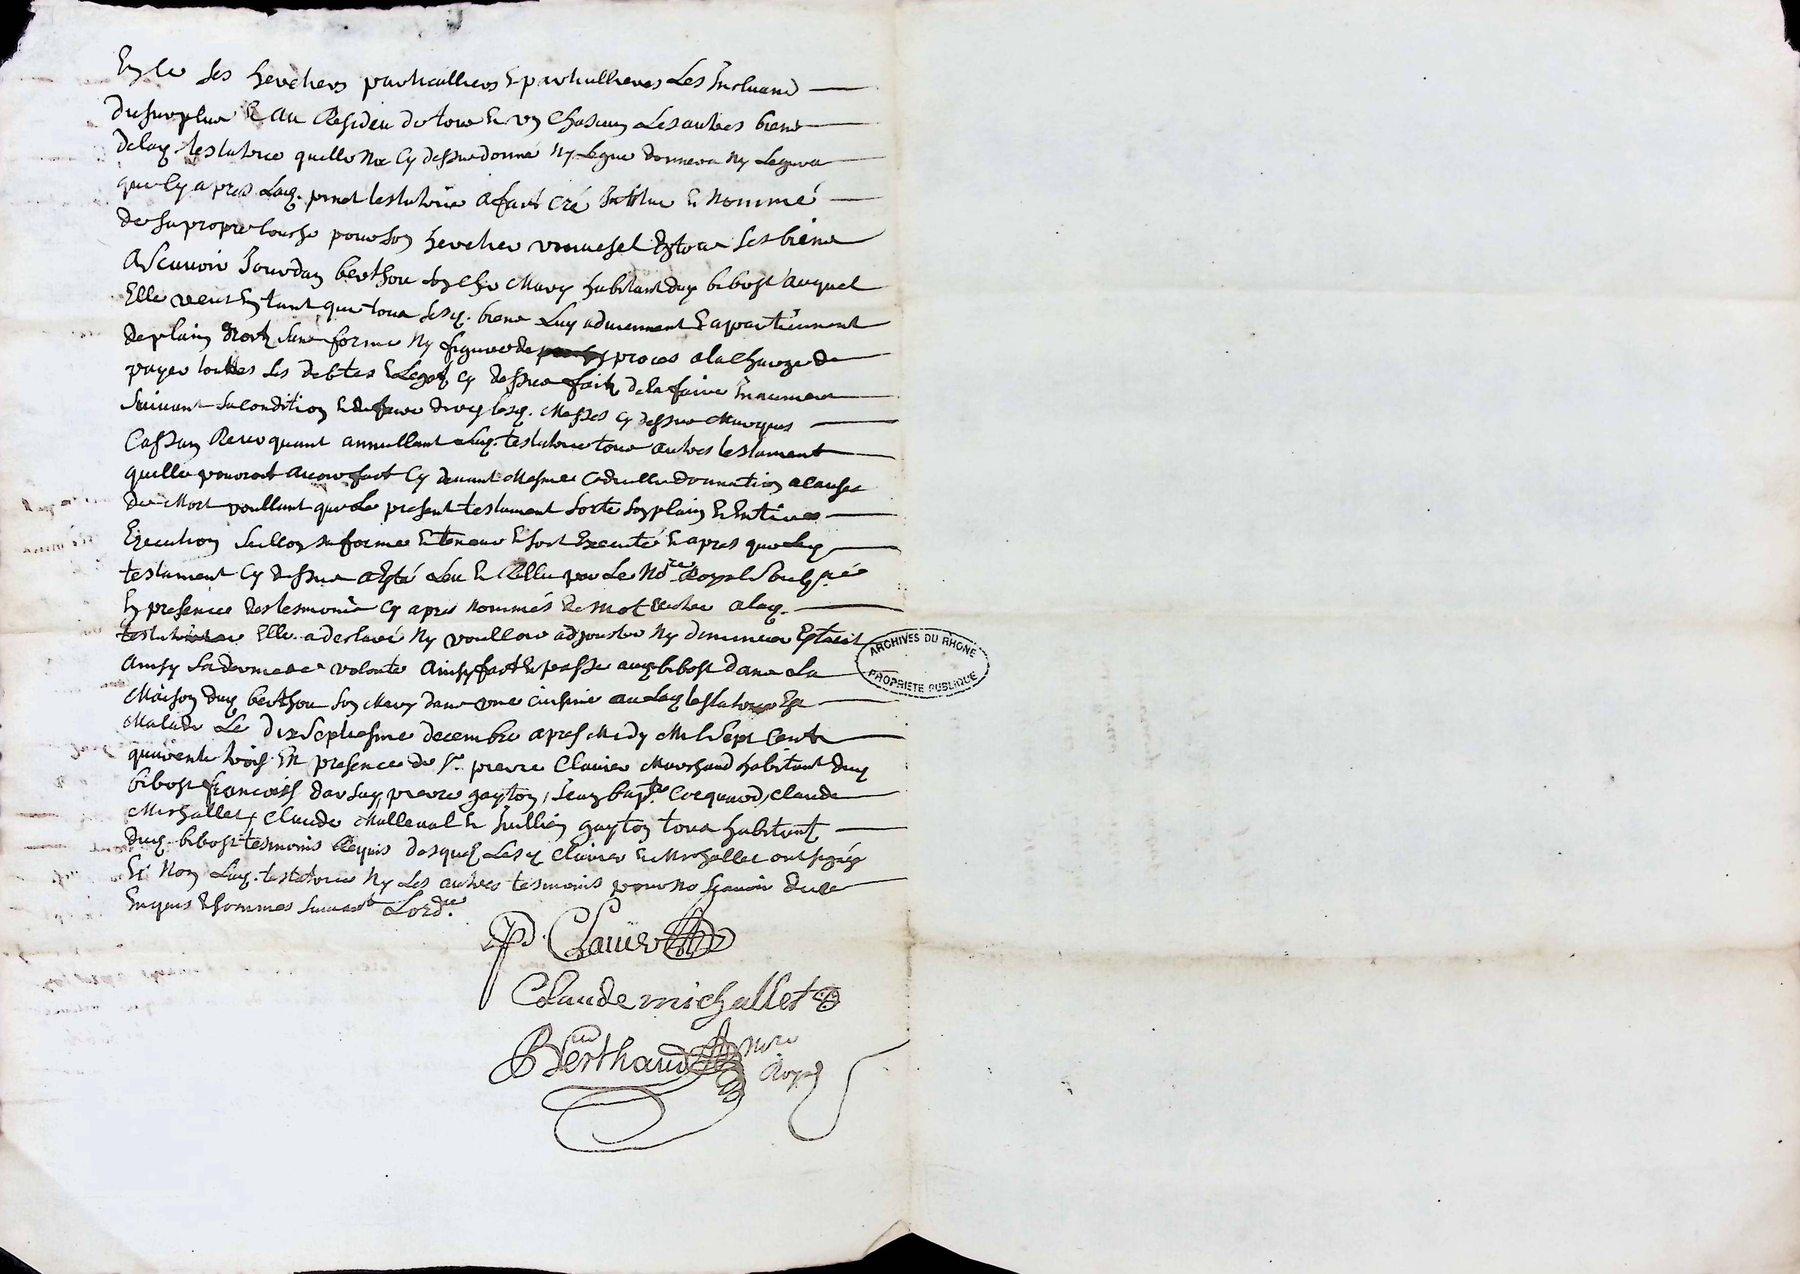 ses heretiers particulliers & particullieres Les Incluand
Dusurplus & Au Resideu de tous & un Chascun Les autres biens
delaq. testatrice quelle Na Cy dessus donné Ny Legué donnera Ny Leguera
que Cy apres Laq. pnnt testatrice a fait cré Institue & Nommé
de sa propre bouche pour son heretier universel tous ses biens
A Scavoir Jourdan berthou son cher Mary habitant duq bibost Auquel
Elle veut Entant que tous sesq. biens Luy adviennent & apartiennent
de plain droit sans forme Ny figure de proces a la Charge de
payer touttes ses debtes & Legat Cy dessus fait
suivant sa condition Messes Cy dessus Marques
Cassan Revoquant annullant Laq. testatrice tous autres testament
quelle pouroit avoir fait Cy devant Mesme Codicille donnation a cause
de Mort voullant que Le present testament sorte son plain & Entiere
Execution sellon sa forme & teneur & soit Executé & apres que Leq
testament Cy dessus a Esté Leu & Relleu par Le Nore. Royal Soubgné
En presence des tesmoins Cy apres nommés de mot a mot alaq.
testatrice Elle a declaré Ny voulloir adjouster Ny diminuer
Ainsy sa derniere volonté Ainsy fait & passé auq bibost dans La
Maison duq berthou son Mary dans une Cuisine ou Laq testatrice Est
Malade Le Dix Septiesme decembre apres Midy Mil Sept Cent
quarente trois En presence de Sr. pierre Clavier Marchand habitant duq
bibost francois pierre gayton, Jean bapte. Coequard, Claude
Michallet, Claude Malleval & Jullien gayton tous habitant
duq. bibost tesmoins Requis desquel Lesq Clavier & Michallet ont signés
Et Non Laq. testatrice Ny Les autres tesmoins pour ne Scavoir
Enquis & sommes suivant Lordce.
P. Clavier
Claude michallet
Berthaud Nore
Royal
ARCHIVES DU RHONE
PROPRIETE PUBLIQUE